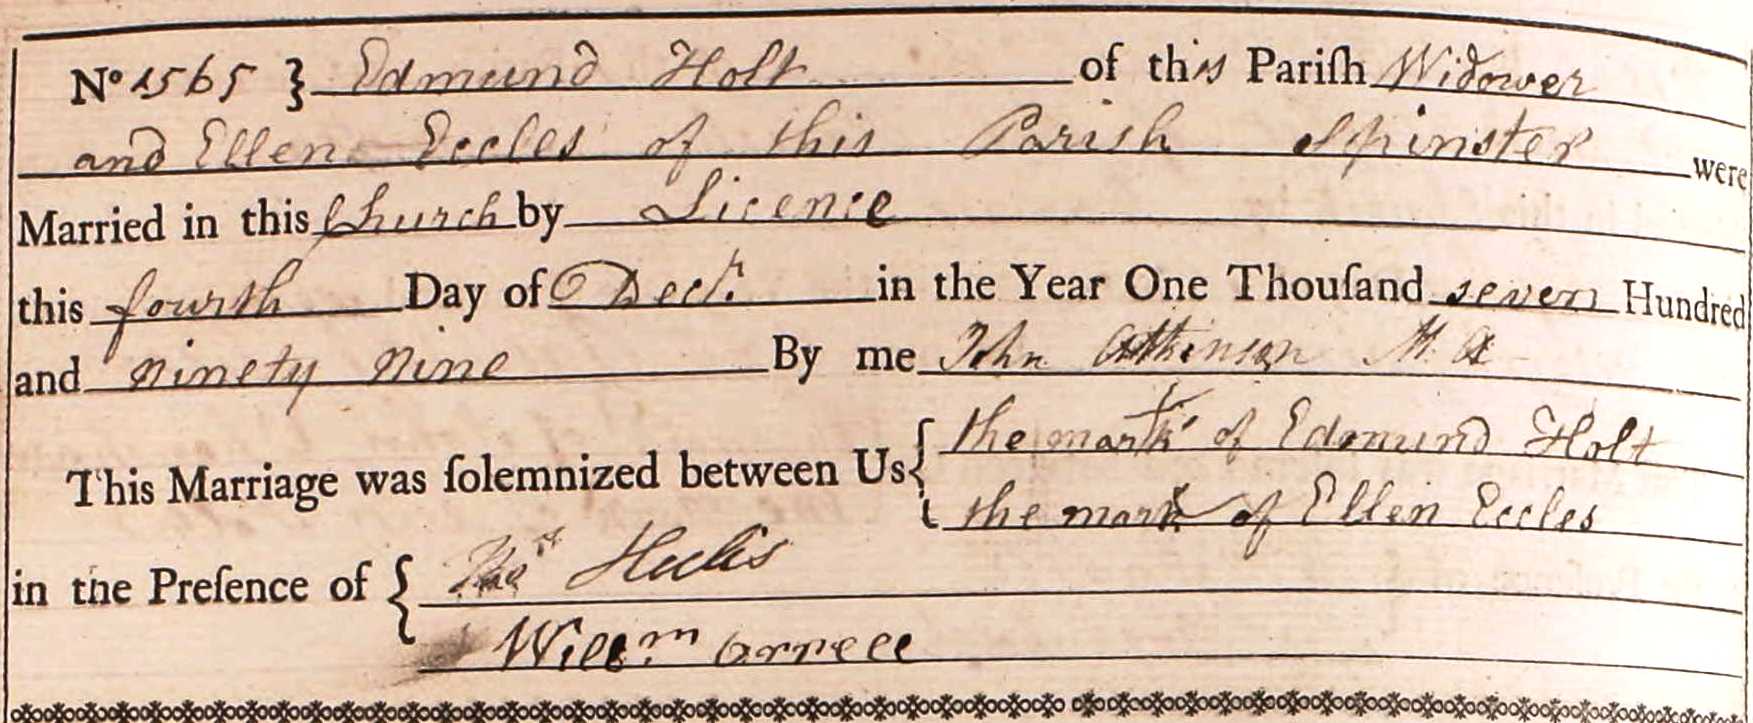 No 1565 } Edmund Holt of this Pariſh Widower
and Ellen Eccles of this Parish Spinster were
Married in this Church by Licence
this fourth Day of Decr. in the Year One Thouſand seven Hundred
and ninety nine By me John Atkinson M. A
This Marriage was ſolemnized between Us { the mark + of Edmund Holt
the mark x of Ellen Eccles
in the Preſence of { Thos
Willm